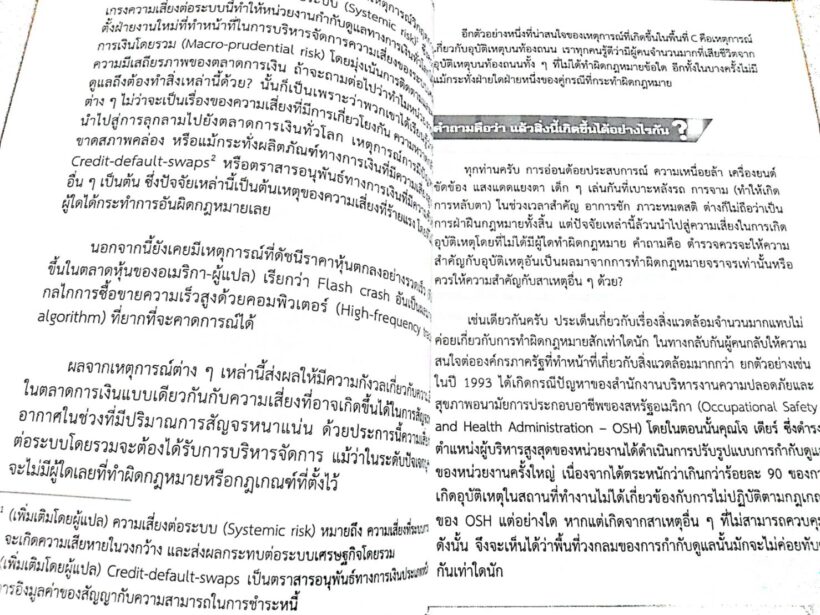 เกรงความเสี่ยงต่อระบบนี้ทำให้หน่วยงานกำกับดูแลทางการเงิน
ตั้งฝ่ายงานใหม่ที่ทำหน้าที่ในการบริหารจัดการความเสี่ยงของระบบ
การเงินโดยรวม (Macro-prudential risk) โดยมุ่งเน้นการติดตาม
ความมีเสถียรภาพของตลาดการเงิน ถ้าจะถามต่อไปว่าทำไมหน่วย
ดูแลถึงต้องทำสิ่งเหล่านี้ด้วย? นั้นก็เป็นเพราะว่าพวกเขาได้เรียนรู้
ต่าง ๆ ไม่ว่าจะเป็นเรื่องของความเสี่ยงที่มีการเกี่ยวโยงกัน
นำไปสู่การลุกลามไปยังตลาดการเงินทั่วโลก เหตุการณ์การมี
ขาดสภาพคล่อง หรือแม้กระทั่งผลิตภัณฑ์ทางการเงินที่มีความ
Credit-default-swaps² หรือตราสารอนุพันธ์ทางการเงินที่มีความ
อื่น ๆ เป็นต้น ซึ่งปัจจัยเหล่านี้เป็นต้นเหตุของความเสี่ยงที่ร้ายแรง
ผู้ใดได้กระทำการอันผิดกฎหมายเลย
นอกจากนี้ยังเคยมีเหตุการณ์ที่ดัชนีราคาหุ้นตกลงอย่างรวดเร็ว
ขึ้นในตลาดหุ้นของอเมริกา-ผู้แปล) เรียกว่า Flash crash อันเป็นผล
กลไกการซื้อขายความเร็วสูงด้วยคอมพิวเตอร์ (High-frequency
algorithm) ที่ยากที่จะคาดการณ์ได้
ผลจากเหตุการณ์ต่าง ๆ เหล่านี้ส่งผลให้มีความกังวลเกี่ยวกับ
ในตลาดการเงินแบบเดียวกันกับความเสี่ยงที่อาจเกิดขึ้นได้ในการ
อากาศในช่วงที่มีปริมาณการสัญจรหนาแน่น ด้วยประการนี้ความเสี่ยง
ต่อระบบโดยรวมจะต้องได้รับการบริหารจัดการ แม้ว่าในระดับปัจเจก
จะไม่มีผู้ใดเลยที่ทำผิดกฎหมายหรือกฎเกณฑ์ที่ตั้งไว้
¹ (เพิ่มเติมโดยผู้แปล) ความเสี่ยงต่อระบบ (Systemic risk) หมายถึง ความเสี่ยงที่
จะเกิดความเสียหายในวงกว้าง และส่งผลกระทบต่อระบบเศรษฐกิจโดยรวม
(เพิ่มเติมโดยผู้แปล) Credit-default-swaps เป็นตราสารอนุพันธ์ทางการเงินประเภท
การอิงมูลค่าของสัญญากับความสามารถในการชำระหนี้
อีกตัวอย่างหนึ่งที่น่าสนใจของเหตุการณ์ที่เกิดขึ้นในพื้นที่ C คือเหตุการณ์
เกี่ยวกับอุบัติเหตุบนท้องถนน เราทุกคนรู้ดีว่ามีผู้คนจำนวนมากที่เสียชีวิตจาก
อุบัติเหตุบนท้องถนนทั้ง ๆ ที่ไม่ได้ทำผิดกฎหมายข้อใด อีกทั้งในบางครั้งไม่มี
แม้กระทั่งฝ่ายใดฝ่ายหนึ่งของคู่กรณีที่กระทำผิดกฎหมาย
คำถามคือว่า แล้วสิ่งนี้เกิดขึ้นได้อย่างไรกัน ?
ทุกท่านครับ การอ่อนด้อยประสบการณ์ ความเหนื่อยล้า เครื่องยนต์
ขัดข้อง แสงแดดแยงตา เด็ก ๆ เล่นกันที่เบาะหลังรถ การจาม (ทำให้เกิด
การหลับตา) ในช่วงเวลาสำคัญ อาการชัก ภาวะหมดสติ ต่างก็ไม่ถือว่าเป็น
การฝ่าฝืนกฎหมายทั้งสิ้น แต่ปัจจัยเหล่านี้ล้วนนำไปสู่ความเสี่ยงในการเกิด
อุบัติเหตุโดยที่ไม่ได้มีผู้ใดทำผิดกฎหมาย คำถามคือ ตำรวจควรจะให้ความ
สำคัญกับอุบัติเหตุอันเป็นผลมาจากการทำผิดกฎหมายจราจรเท่านั้นหรือ
ควรให้ความสำคัญกับสาเหตุอื่น ๆ ด้วย?
เช่นเดียวกันครับ ประเด็นเกี่ยวกับเรื่องสิ่งแวดล้อมจำนวนมากแทบไม่
ค่อยเกี่ยวกับการทำผิดกฎหมายสักเท่าใดนัก ในทางกลับกันผู้คนกลับให้ความ
สนใจต่อองค์กรภาครัฐที่ทำหน้าที่เกี่ยวกับสิ่งแวดล้อมมากกว่า ยกตัวอย่างเช่น
ในปี 1993 ได้เกิดกรณีปัญหาของสำนักงานบริหารงานความปลอดภัยและ
สุขภาพอนามัยการประกอบอาชีพของสหรัฐอเมริกา (Occupational Safety
and Health Administration – OSH) โดยในตอนนั้นคุณโจ เดียร์ ซึ่งดำรง
ตำแหน่งผู้บริหารสูงสุดของหน่วยงานได้ดำเนินการปรับรูปแบบการกำกับดูแล
ของหน่วยงานครั้งใหญ่ เนื่องจากได้ตระหนักว่าเกินกว่าร้อยละ 90 ของการ
เกิดอุบัติเหตุในสถานที่ทำงานไม่ได้เกี่ยวข้องกับการไม่ปฏิบัติตามกฎเกณฑ์
ของ OSH แต่อย่างใด หากแต่เกิดจากสาเหตุอื่น ๆ ที่ไม่สามารถควบคุม
ดังนั้น จึงจะเห็นได้ว่าพื้นที่วงกลมของการกำกับดูแลนั้นมักจะไม่ค่อยทับ
กันเท่าใดนัก